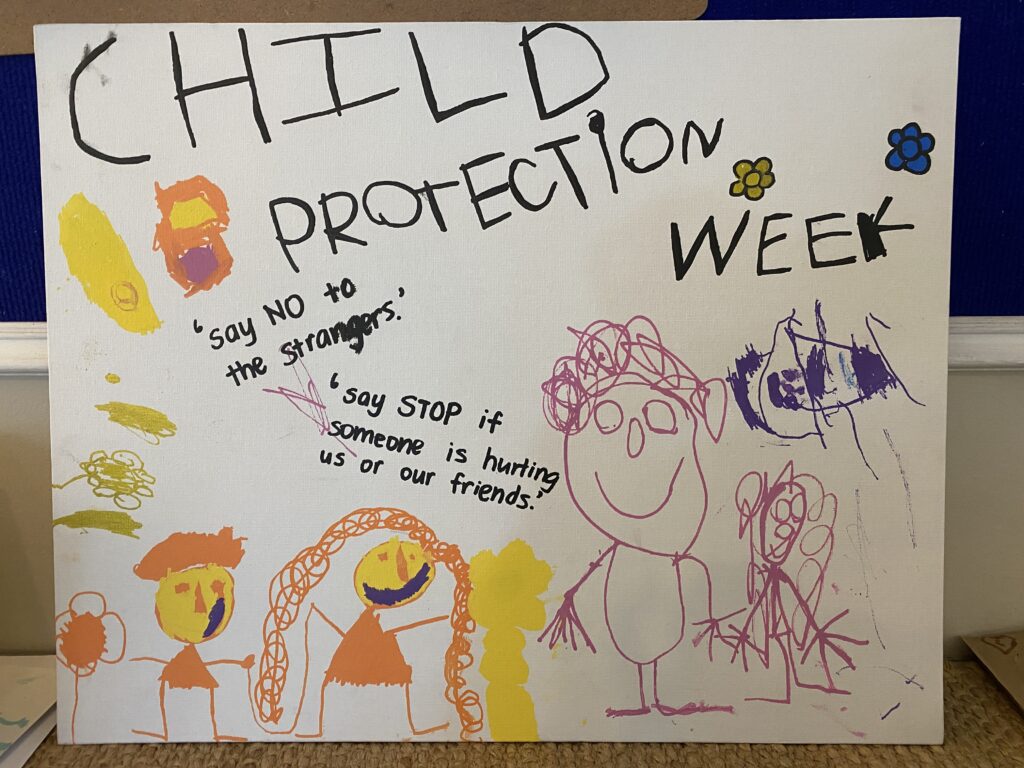 CHILD
PROTECTION
WEEK
'say NO to
the strangers.'
'say STOP if
someone is hurting
us or our friends.'